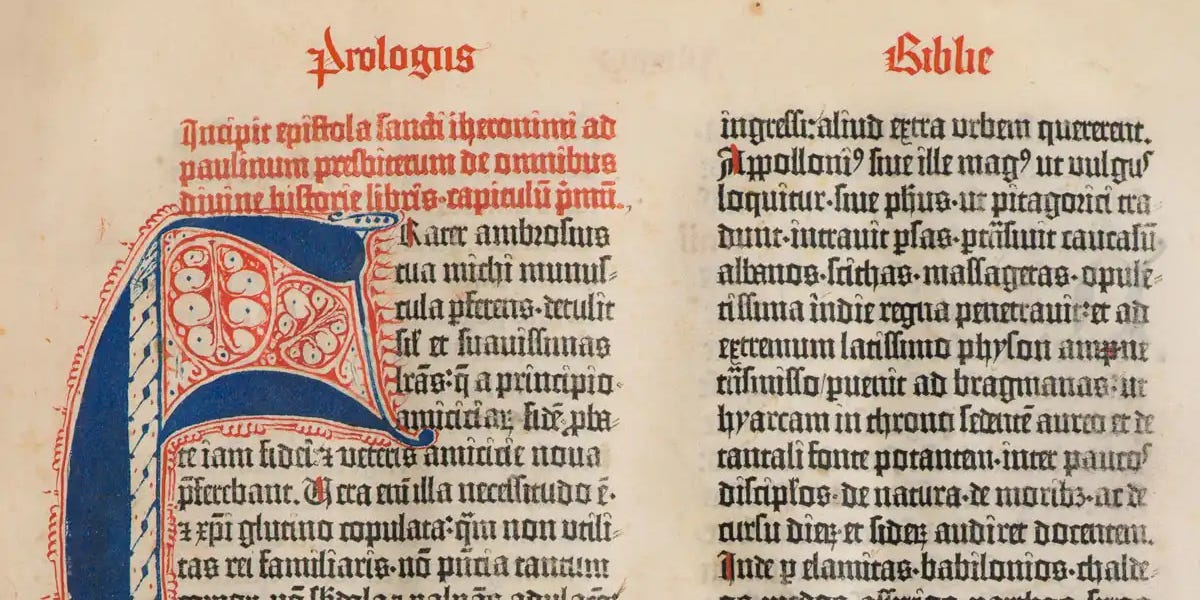 Prologus
Incipit epistola sancti iheronimi ad
paulinum presbiterum de omnibus
divine historie libris·capitulū p̄mū.
FRater ambrosius
tua michi munus⸗
cula ꝑferens·detulit
sił et suavissimas
lr̄as:q̄ a principio
amicicia℞·fidē ꝓba⸗
te iam fidei ⁊ veteris amicicie nova
p̄ferebant. Vera eni̅ illa necessitudo ē·
⁊ xp̄i glutino copulata:q̄m non utili⸗
tas rei familiaris·nō p̄ncia tantum
corporum·nō
Biblie
ingressi:aliud extra urbem quererent.
Appolloniꝰ sive ille magꝰ ut vulgus
loquitur·sive ph̄us·ut pitagorici tra⸗
dunt·intravit ꝑsas·ptrāsivit caucasū
albanos·scithas·massagetas·opulē⸗
tissima indie regna penetravit:et ad
extremum latissimo physon ampne
trāsmisso/ꝑvenit ad bragmanas:ut
hyarcam in throno sedentē aureo et de
tantali fonte potantem·inter paucos
discipłos·de natura·de moribꝫ·ac de
cursu die℞ et side℞ audiret docentem.
Inde ꝑ elamitas·babilonios·chalde⸗